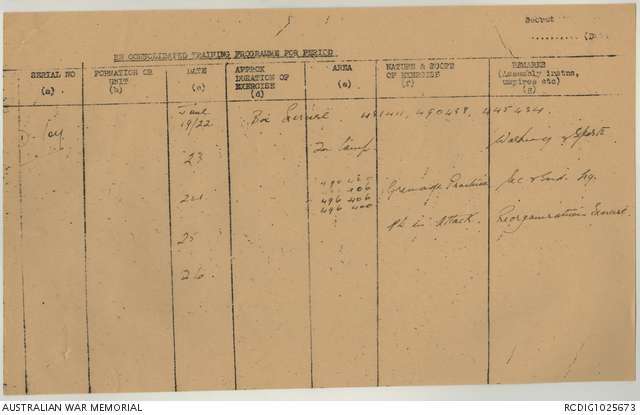 Secret
BN CONSOLIDATED TRAINING PROGRAMME FOR PERIOD
SERIAL NO
(a)
FORMATION OR
UNIT
(b)
DATE
(c)
APPROX
DURATION OF
EXERCISE
(d)
AREA
(e)
NATURE & SCOPE
OF EXERCISE
(f)
REMARKS
(Assembly instns,
umpires etc)
(g)
June
19/22 Bde Exercise 490438, 445434
23 In Camp Washing & Sports
24 496 406 Grenade Practice
496 400
25 in Attack. Reorganisation Exercise
26
AUSTRALIAN WAR MEMORIAL
RCDIG1025673